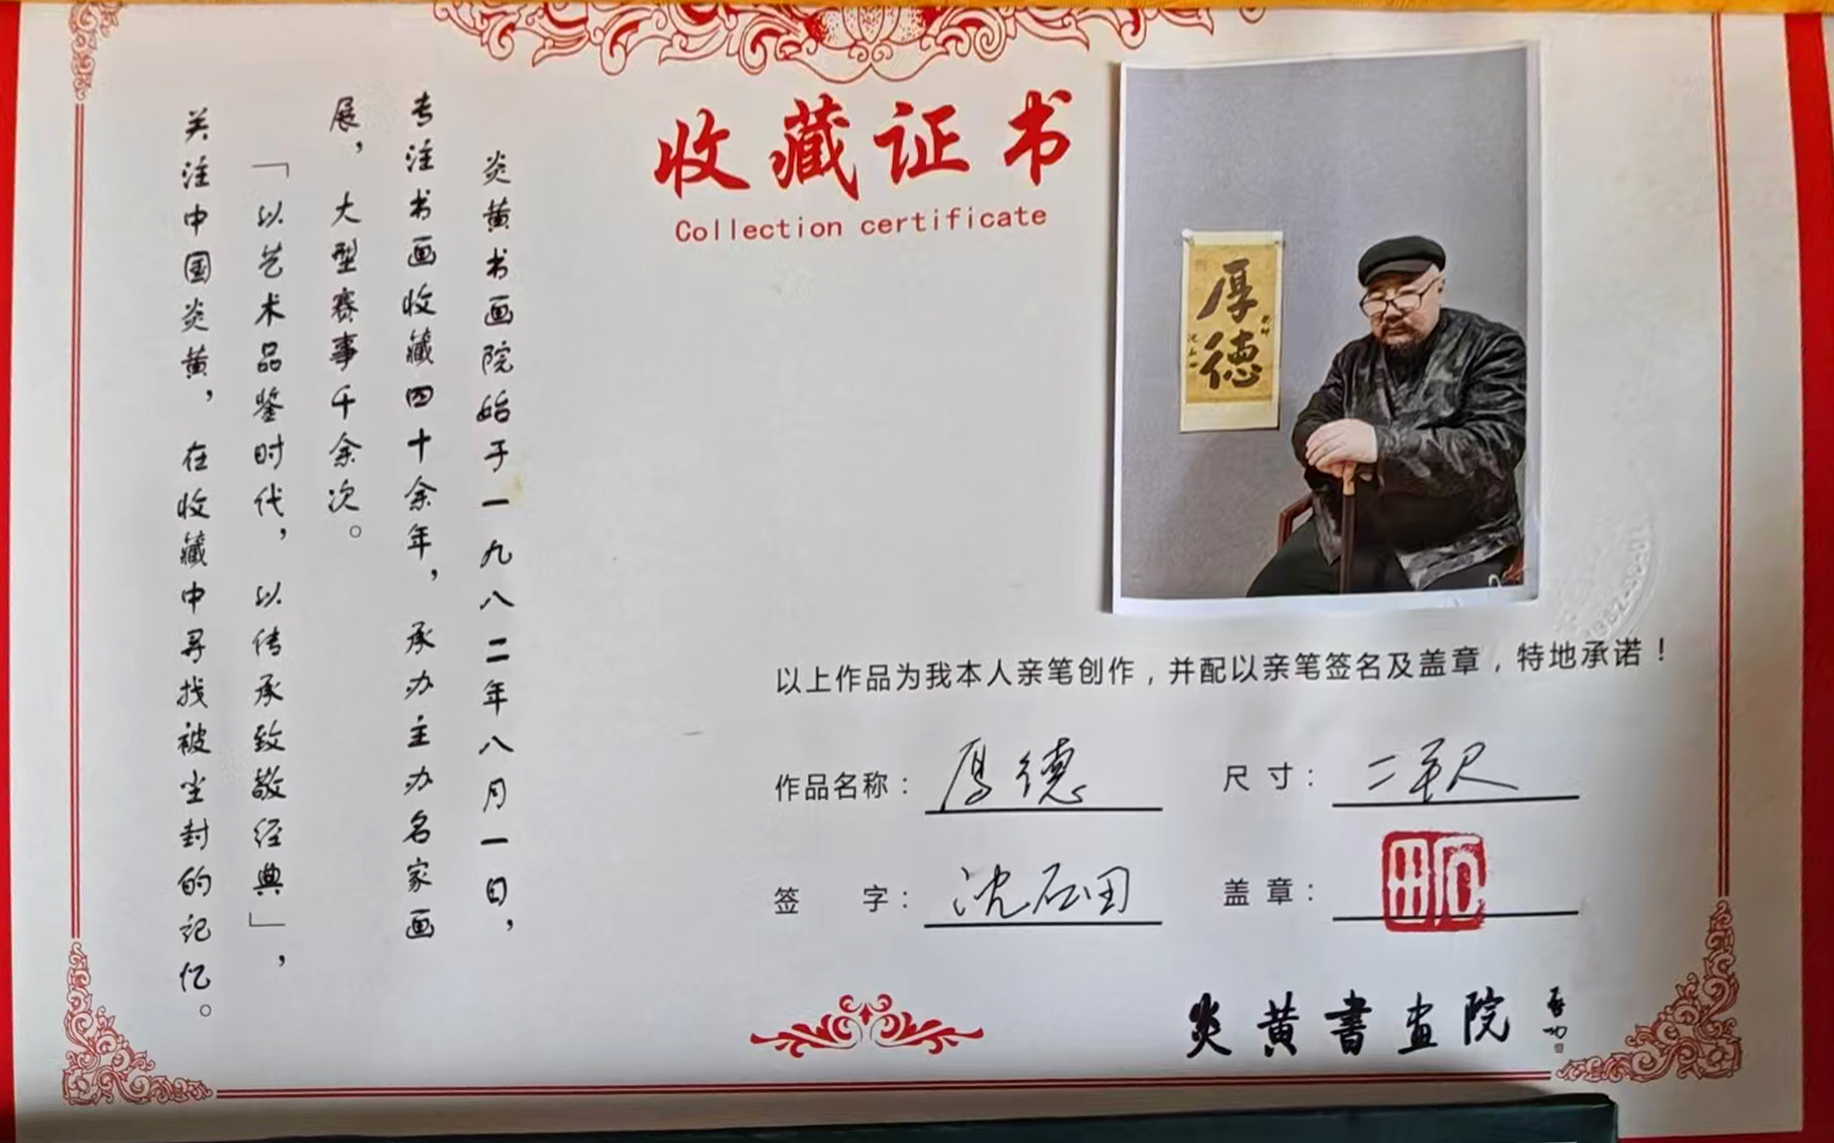 收藏证书
Collection certificate
炎黄书画院始于一九八二年八月一日，
专注书画收藏四十余年，承办主办名家画
展，大型赛事千余次。
「以艺术品鉴时代，以传承致敬经典」，
关注中国炎黄，在收藏中寻找被尘封的记忆。
厚德
沈石田
以上作品为我本人亲笔创作，并配以亲笔签名及盖章，特地承诺！
作品名称：厚德
尺寸：二平尺
签字：沈石田
盖章：石田
炎黄書画院
启功